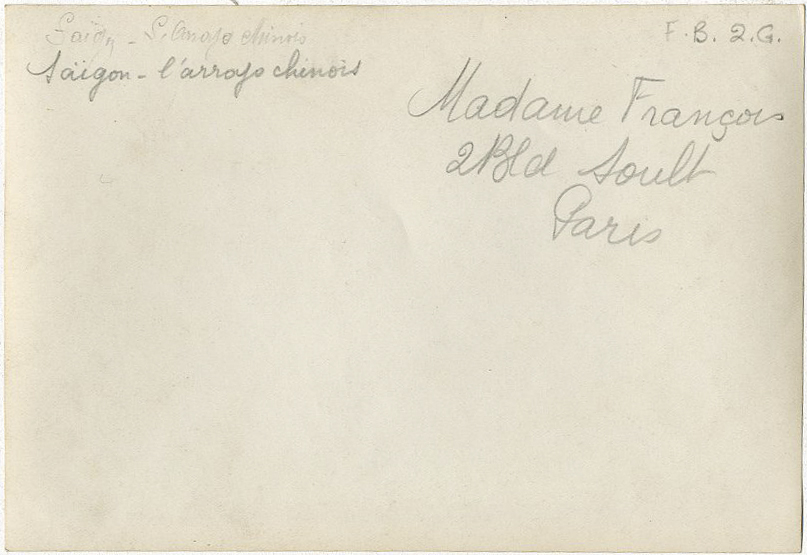 Saïgon - L'arroyo chinois
Saïgon - l'arroyo chinois
F.B. 2.G.
Madame François
2 Bld Soult
Paris